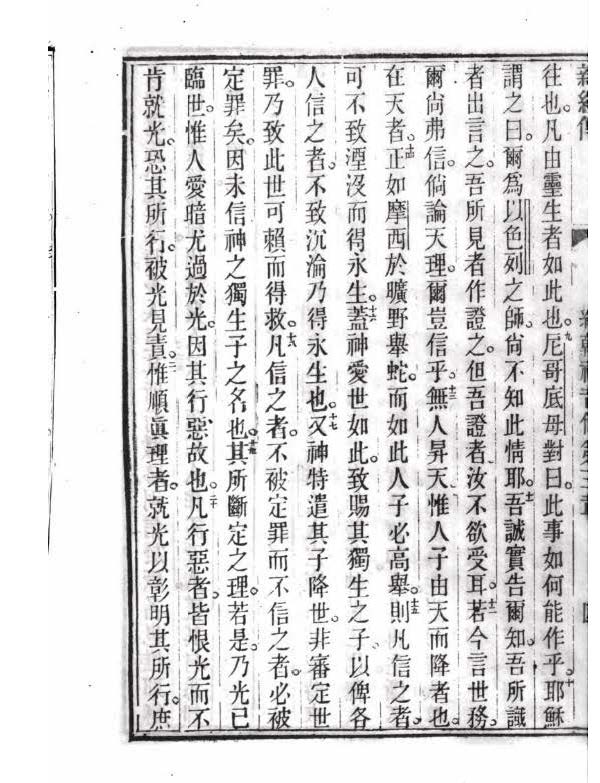 往也。凡由靈生者如此也。九厄哥底母對曰。此事如何能作乎。十耶穌
謂之曰。爾爲以色列之師。尙不知此情耶。十一吾誠實告爾知。吾所識
者出言之。吾所見者作證之。但吾證者汝不欲受耳。十二若今言世務。
爾尙弗信。倘論天理。爾豈信乎。十三無人昇天惟人子由天而降者也。
在天者。十四正如摩西於曠野舉蛇。而如此人子必高舉。十五則凡信之者。
可不致湮沒而得永生。十六蓋神愛世如此。致賜其獨生之子。以俾各
人信之者。不致沉淪乃得永生也。十七又神特遣其子降世。非審定世
罪。乃致此世可賴而得救。十八凡信之者。不被定罪而不信之者。必被
定罪矣。因未信神之獨生子之名也。十九其所斷定之理。若是。乃光已
臨世。惟人愛暗尤過於光。因其行惡故也。二十凡行惡者。皆恨光而不
肯就光。恐其所行。被光見責。二一惟順眞理者。就光以彰明其所行。庶